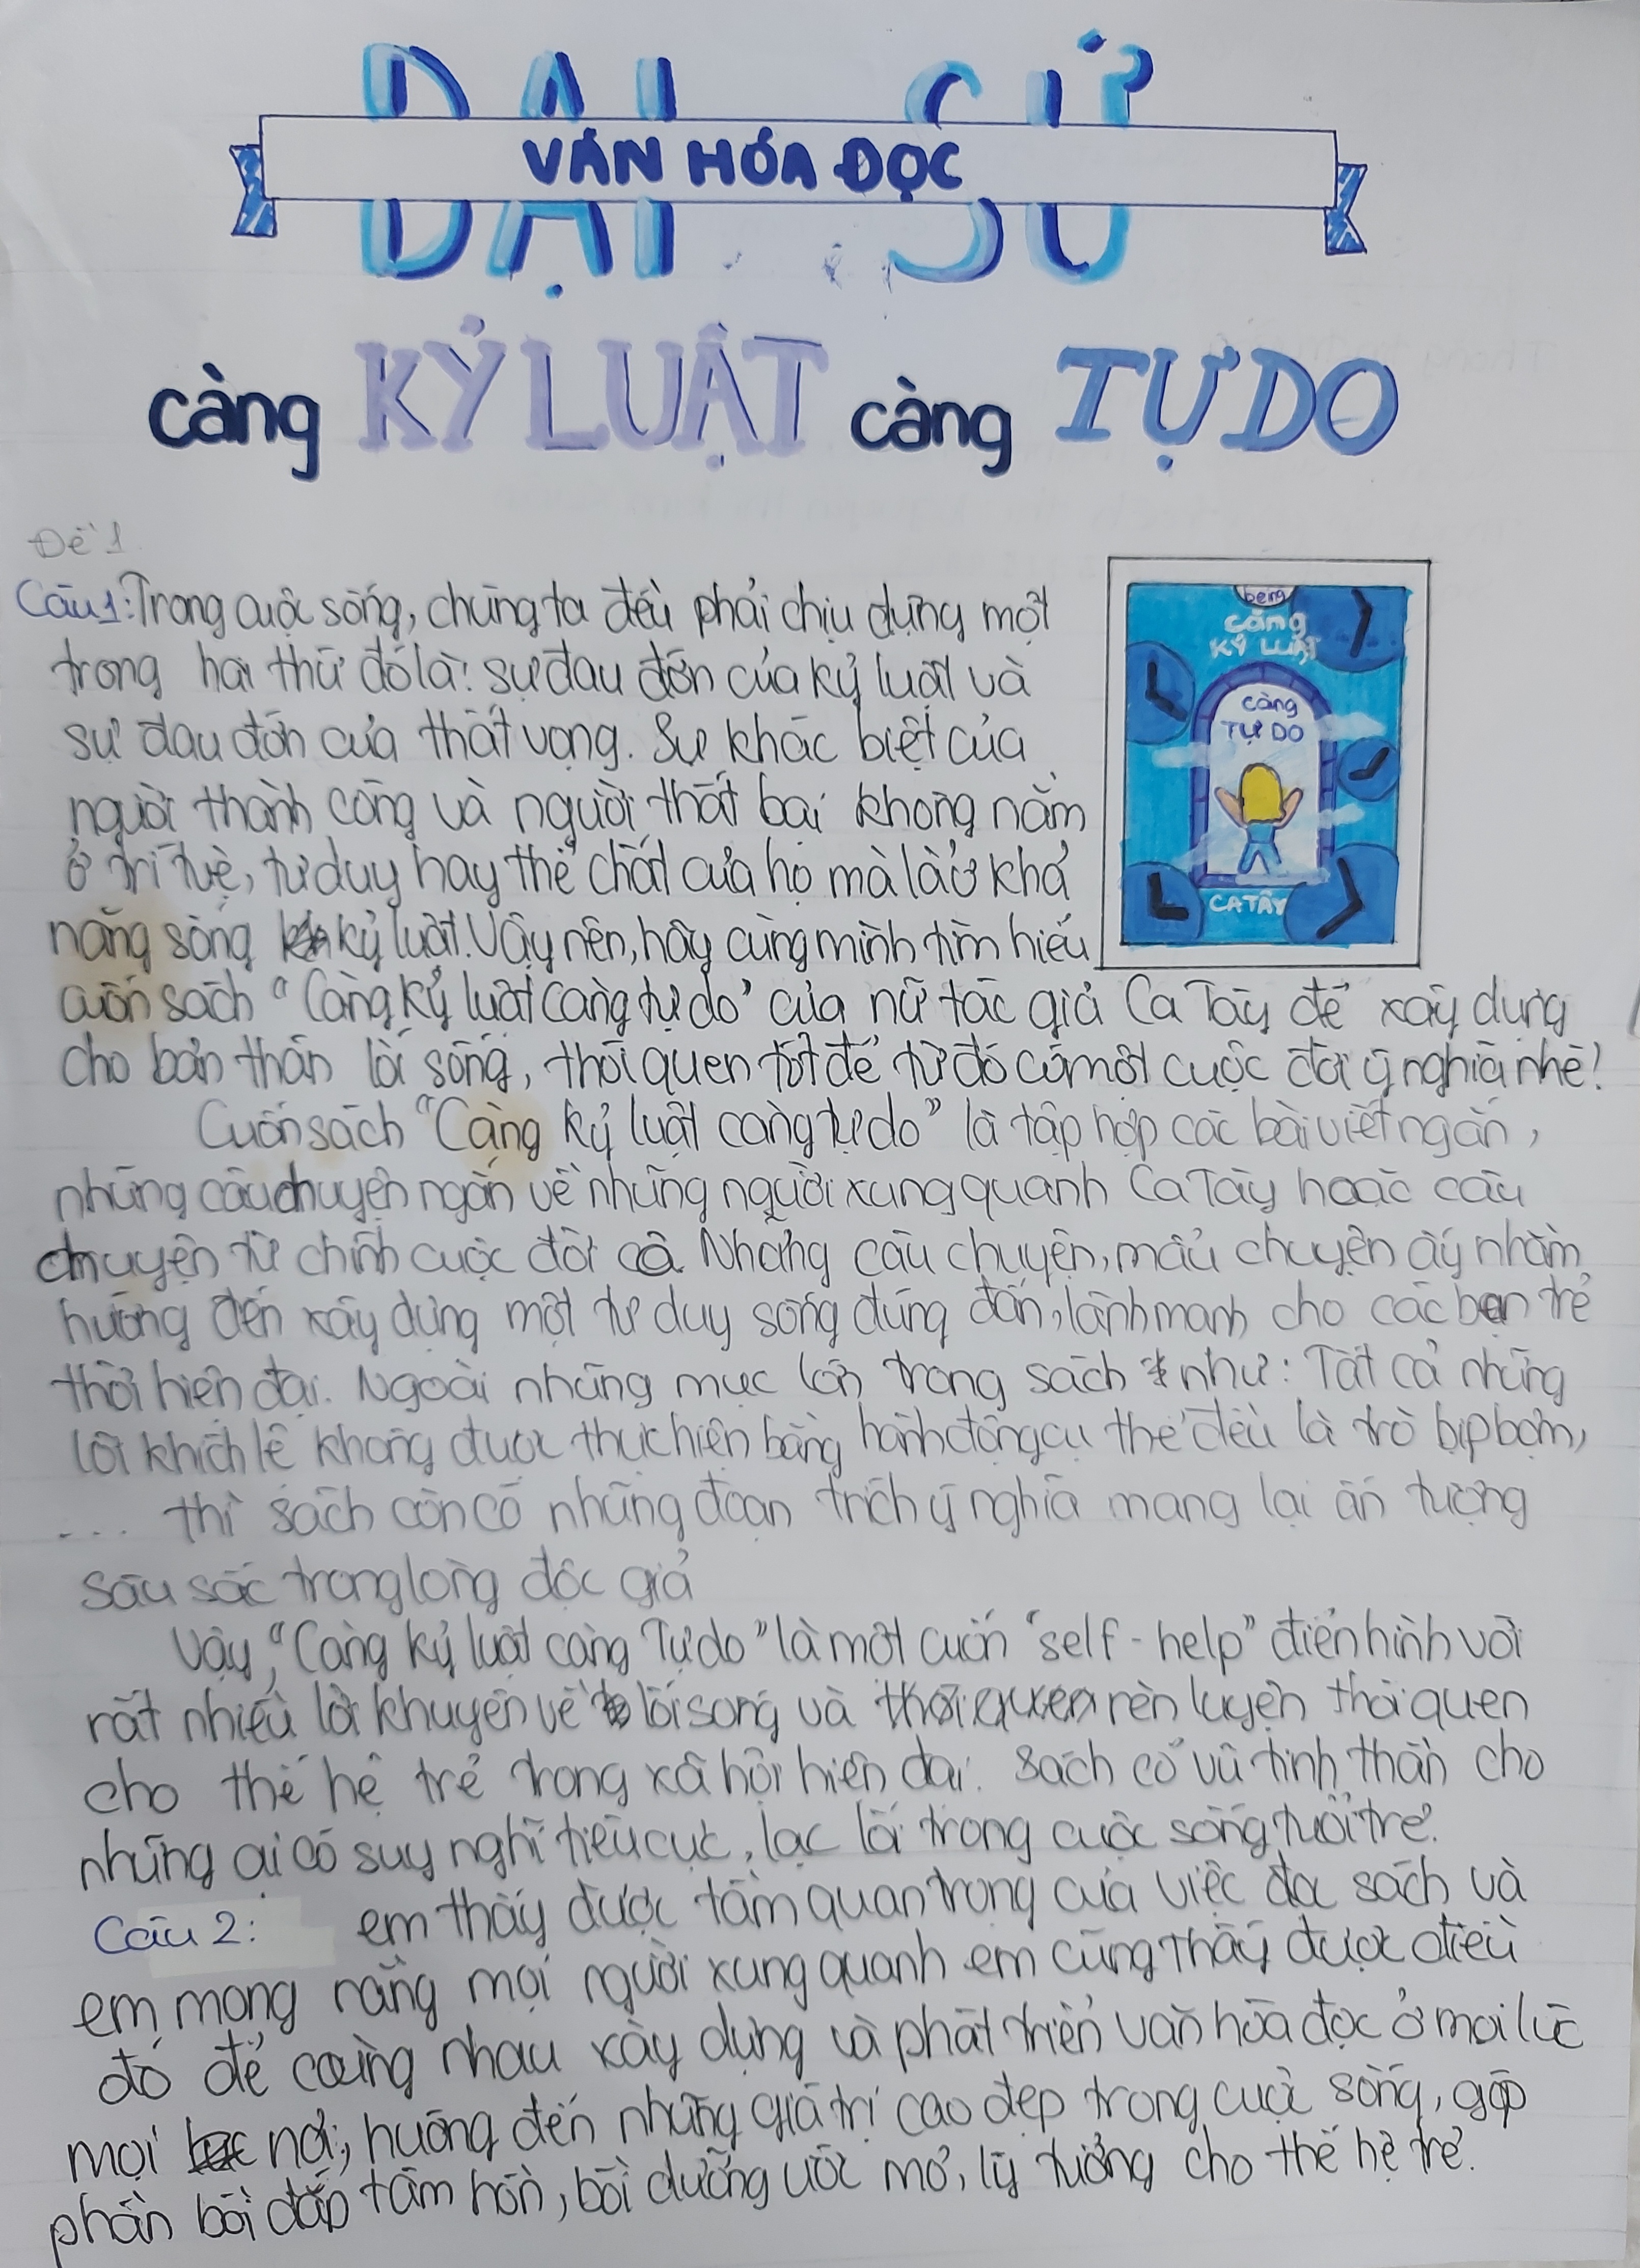 ĐẠI SỨ
VĂN HÓA ĐỌC
càng KỶ LUẬT càng TỰ DO
Đề 1
Câu 1: Trong cuộc sống, chúng ta đều phải chịu dựng một
trong hai thứ đó là: sự đau đớn của kỷ luật và
sự đau đớn của thất vọng. Sự khác biệt của
người thành công và người thất bại không nằm
ở trí tuệ, tư duy hay thể chất của họ mà là ở khả
năng sống kỷ luật. Vậy nên, hãy cùng mình tìm hiểu
cuốn sách "Càng kỷ luật càng tự do" của nữ tác giả Ca Tây để xây dựng
cho bản thân lối sống, thói quen tốt để từ đó có một cuộc đời ý nghĩa nhé!
Cuốn sách "Càng kỷ luật càng tự do" là tập hợp các bài viết ngắn,
những câu chuyện ngắn về những người xung quanh Ca Tây hoặc câu
chuyện từ chính cuộc đời cô. Những câu chuyện, mẩu chuyện ấy nhằm
hướng đến xây dựng một tư duy sống đúng đắn, lành mạnh cho các bạn trẻ
thời hiện đại. Ngoài những mục lớn trong sách như: Tất cả những
lời khích lệ không được thực hiện bằng hành động cụ thể đều là trò bịp bợm,
... thì sách còn có những đoạn trích ý nghĩa mang lại ấn tượng
sâu sắc trong lòng độc giả
Vậy, "Càng kỷ luật càng Tự do" là một cuốn "self - help" điển hình với
rất nhiều lời khuyên về lối sống và rèn luyện thói quen
cho thế hệ trẻ trong xã hội hiện đại. Sách cổ vũ tinh thần cho
những ai có suy nghĩ tiêu cực, lạc lối trong cuộc sống tuổi trẻ.
Câu 2: em thấy được tầm quan trọng của việc đọc sách và
em mong rằng mọi người xung quanh em cũng thấy được điều
đó để cùng nhau xây dựng và phát triển văn hóa đọc ở mọi lúc
mọi nơi, hướng đến những giá trị cao đẹp trong cuộc sống, góp
phần bồi đắp tâm hồn, bồi dưỡng ước mơ, lý tưởng cho thế hệ trẻ.
being
càng
KỶ LUẬT
càng
TỰ DO
CA TÂY